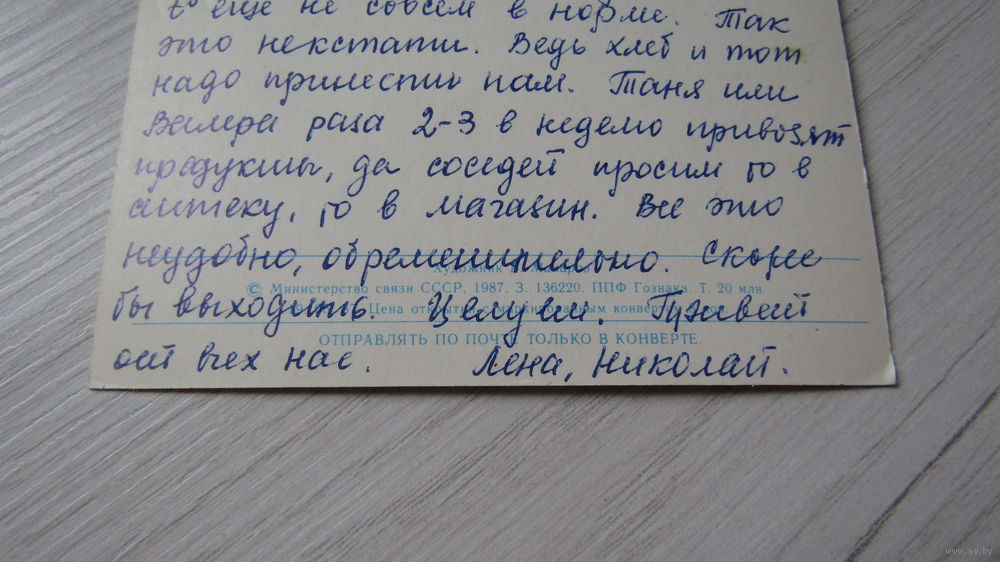 t° еще не совсем в норме. Так
это некстати. Ведь хлеб и тот
надо принести нам. Таня или
Валера раза 2-3 в неделю привозят
продукты, да соседей просим то в
аптеку, то в магазин. Все это
неудобно, обременительно. Скорее
Художник
© Министерство связи СССР, 1987. З. 136220. ППФ Гознака. Т. 20 млн.
бы выходить. Целуем. Привет
Цена открытки с маркированным конвертом
ОТПРАВЛЯТЬ ПО ПОЧТЕ ТОЛЬКО В КОНВЕРТЕ.
от всех нас. Лена, Николай.
www.ay.by